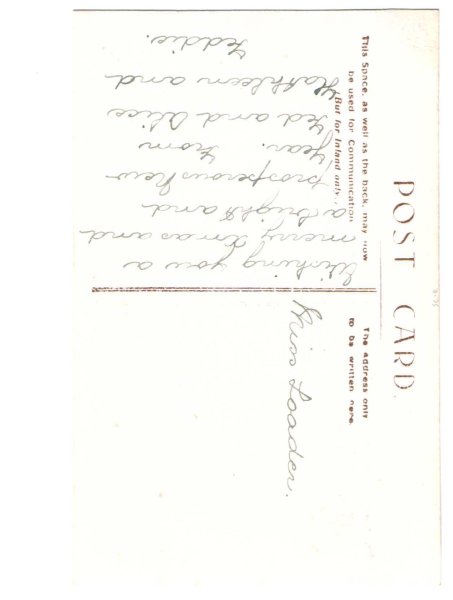 POST CARD
This Space, as well as the back, may now
be used for Communication
(But for Inland only.)
The address only
to be written here.
Wishing you a
merry Xmas and
a bright and
prosperous New
Year. From
Ted and Alice
Kathleen and
Teddie.
Miss Loader.